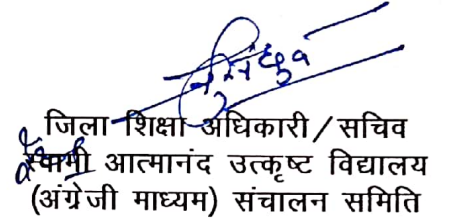 जिला शिक्षा अधिकारी / सचिव
स्वामी आत्मानंद उत्कृष्ट विद्यालय
(अंग्रेजी माध्यम) संचालन समिति